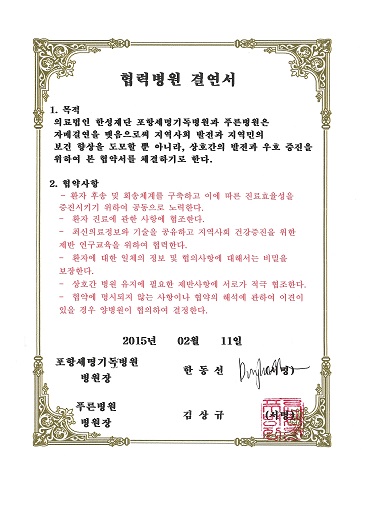 협력병원 결연서
1. 목적
의료법인 한성재단 포항세명기독병원과 푸른병원은
자매결연을 맺음으로써 지역사회 발전과 지역민의
보건 향상을 도모할 뿐 아니라, 상호간의 발전과 우호 증진을
위하여 본 협약서를 체결하기로 한다.
2. 협약사항
- 환자 후송 및 회송체계를 구축하고 이에 따른 진료효율성을
증진시키기 위하여 공동으로 노력한다.
- 환자 진료에 관한 사항에 협조한다.
- 최신의료정보와 기술을 공유하고 지역사회 건강증진을 위한
제반 연구교육을 위하여 협력한다.
- 환자에 대한 일체의 정보 및 협의사항에 대해서는 비밀을
보장한다.
- 상호간 병원 유지에 필요한 제반사항에 서로가 적극 협조한다.
- 협약에 명시되지 않는 사항이나 협약의 해석에 관하여 이견이
있을 경우 양병원이 협의하여 결정한다.
2015년 02월 11일
포항세명기독병원
병원장 한 동 선
푸른병원
병원장 김 상 규 (서명)